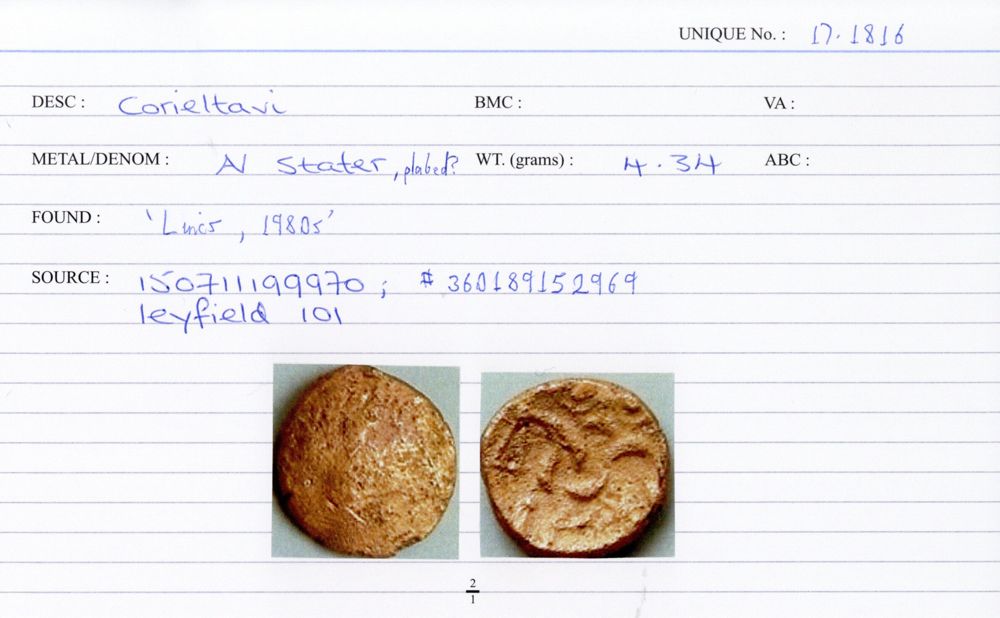 UNIQUE No. : 17.1816
DESC : Corieltavi BMC : VA :
METAL/DENOM : A/ Stater, plated? WT. (grams) : 4.34 ABC :
FOUND : 'Lincs, 1980s'
SOURCE : 150711199970 ; # 360189152969
leyfield 101
2
1